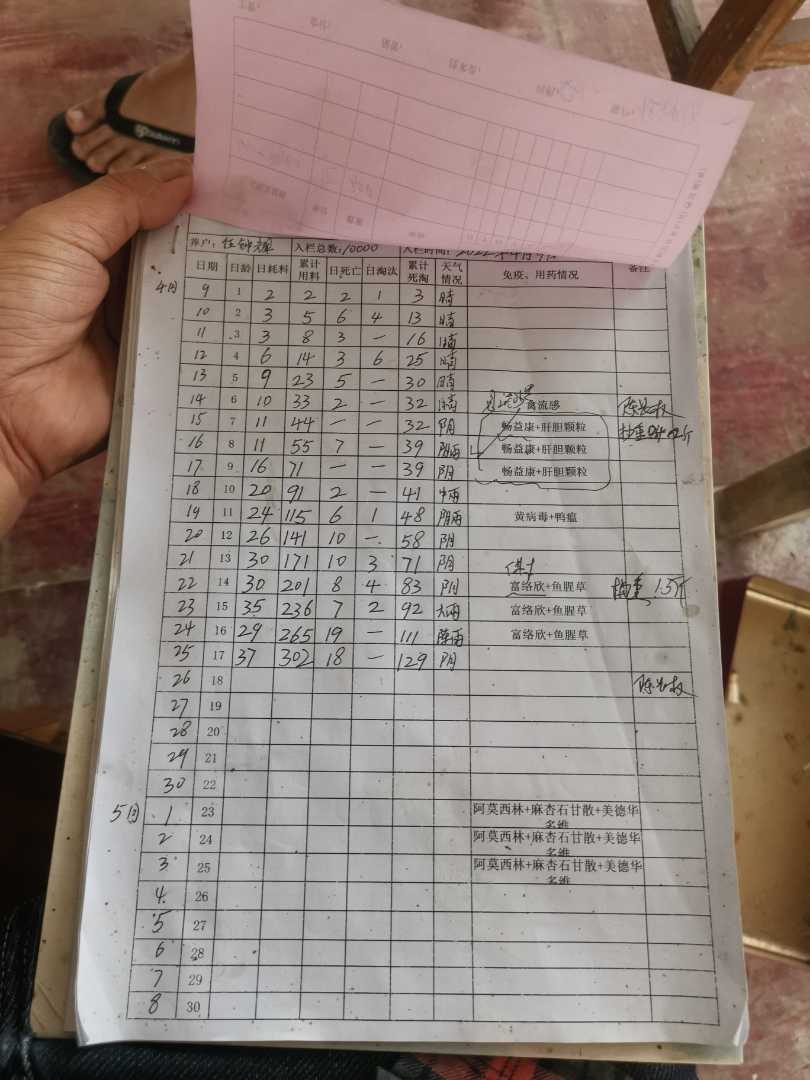 养户: 任钟 入栏总数:10000 入栏时间: 2022年4月9日
日期 日龄 日耗料 累计用料 日死亡 日淘汰 累计死淘 天气情况 免疫、用药情况 备注
4月 9 1 2 2 2 1 3 晴
10 2 3 5 6 4 13 晴
11 3 3 8 3 — 16 晴
12 4 6 14 3 6 25 晴
13 5 9 23 5 — 30 晴
14 6 10 33 2 — 32 晴 禽流感
15 7 11 44 — — 32 阴 畅益康+肝胆颗粒
16 8 11 55 7 — 39 阴雨 畅益康+肝胆颗粒
17 9 16 71 — — 39 阴 畅益康+肝胆颗粒
18 10 20 91 2 — 41 中雨
19 11 24 115 6 1 48 阴雨 黄病毒+鸭瘟
20 12 26 141 10 — 58 阴
21 13 30 171 10 3 71 阴
22 14 30 201 8 4 83 阴 富络欣+鱼腥草 抽重 1.5斤
23 15 35 236 7 2 92 大雨 富络欣+鱼腥草
24 16 29 265 19 — 111 阵雨 富络欣+鱼腥草
25 17 37 302 18 — 129 阴
26 18
27 19
28 20
29 21
30 22
5月 1 23 阿莫西林+麻杏石甘散+美德华多维
2 24 阿莫西林+麻杏石甘散+美德华多维
3 25 阿莫西林+麻杏石甘散+美德华多维
4 26
5 27
6 28
7 29
8 30